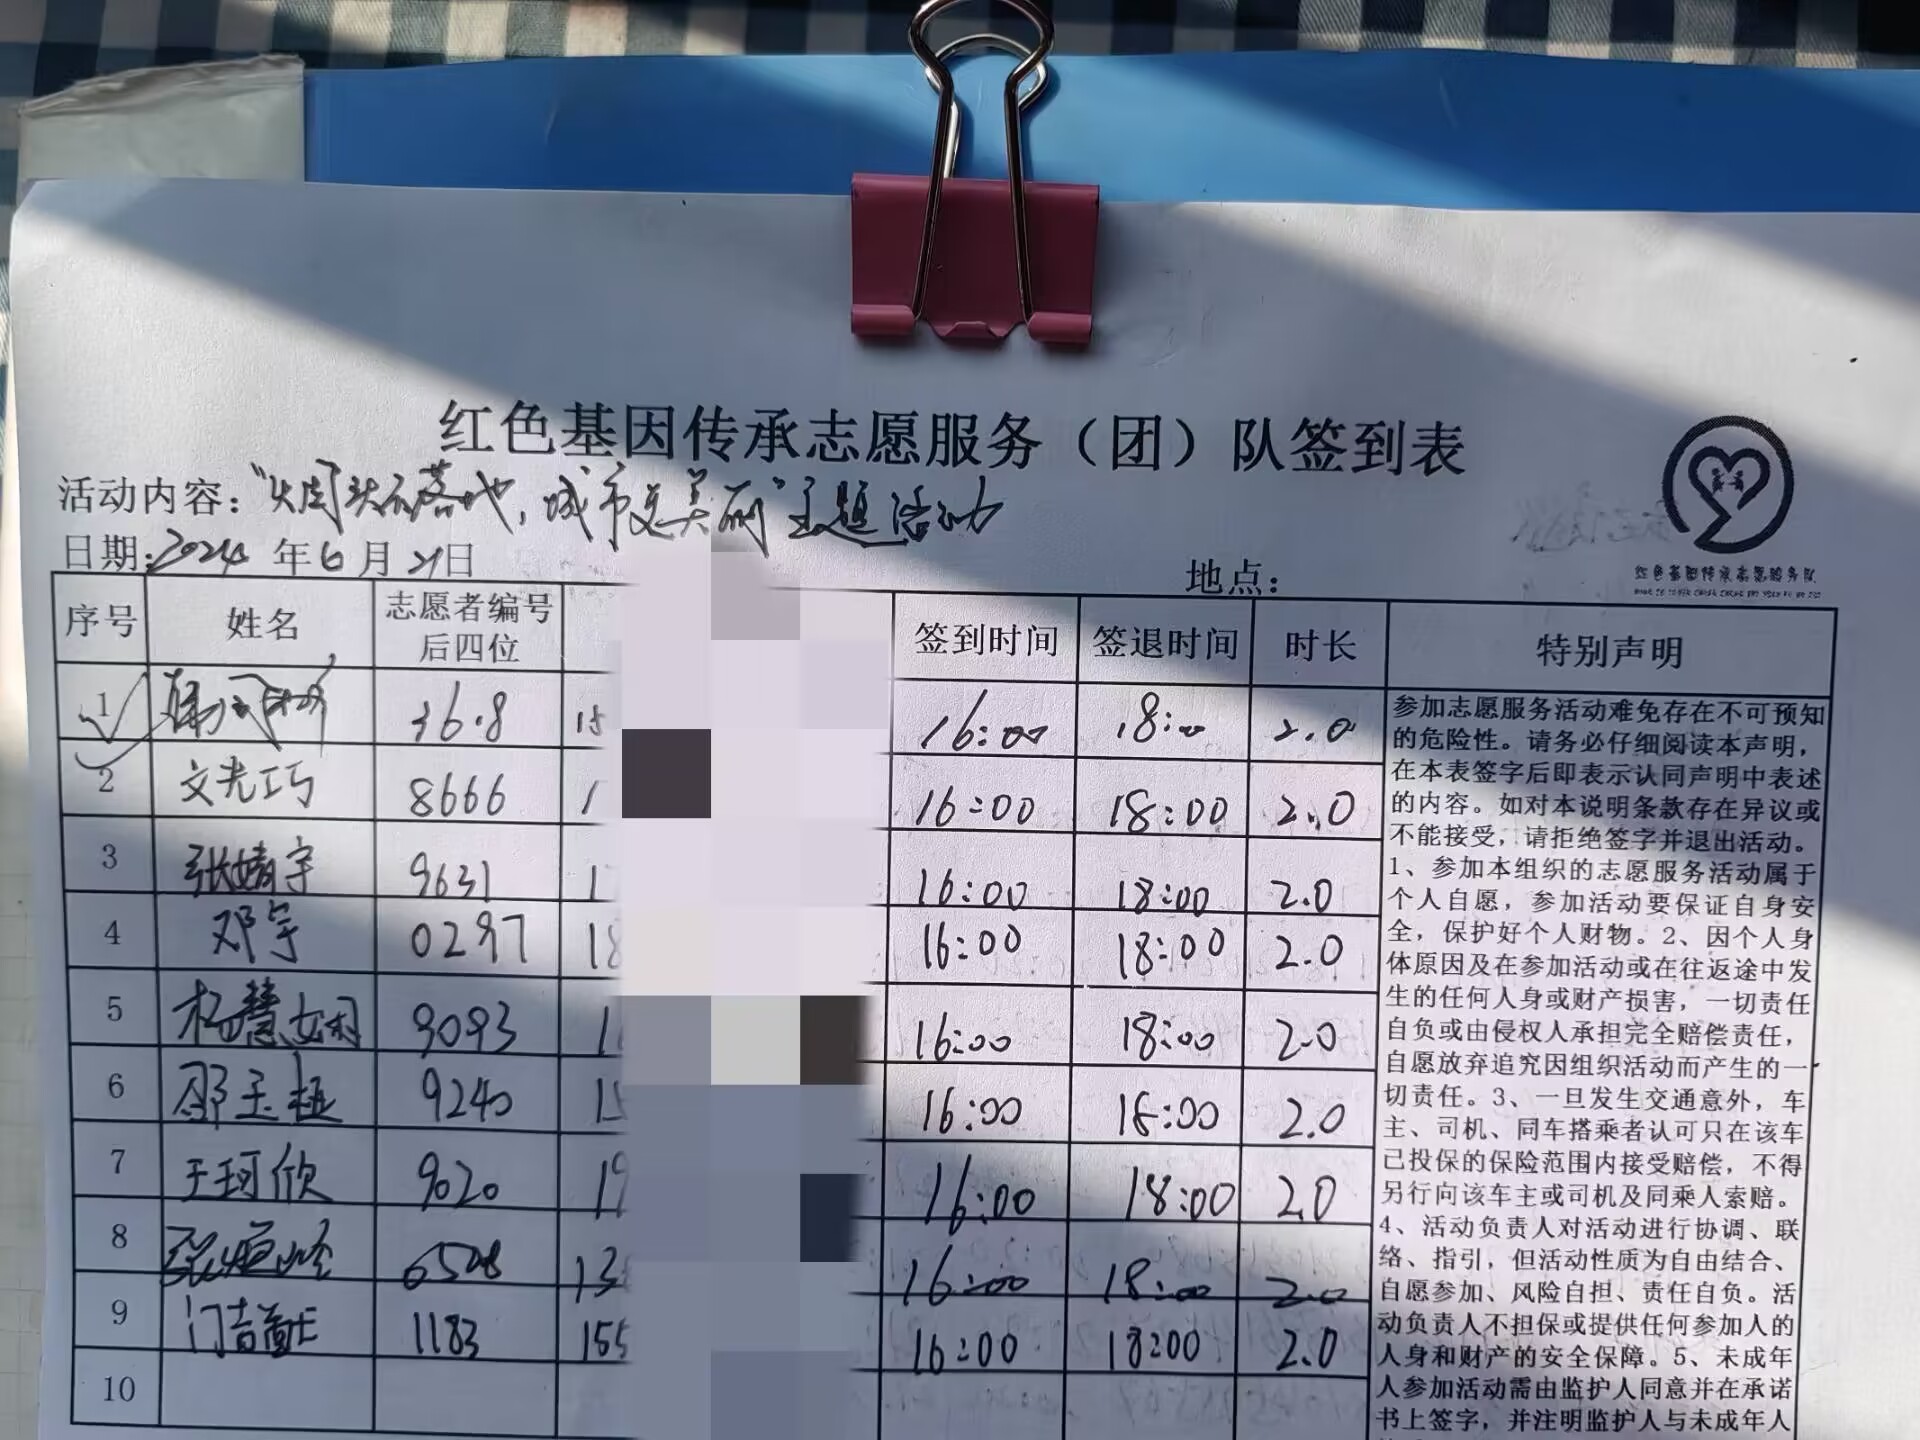 红色基因传承志愿服务（团）队签到表
活动内容："烟头不落地，城市更美丽"主题活动
日期:2024年6月21日
地点：
红色基因传承志愿服务队
序号 姓名 志愿者编号后四位 签到时间 签退时间 时长 特别声明
1 15 16:00 18:00 2.0
2 文光巧 8666 1 16:00 18:00 2.0
3 张婧宇 9631 1 16:00 18:00 2.0
4 邓宇 0297 18 16:00 18:00 2.0
5 杨慧娴 9093 1 16:00 18:00 2.0
6 邵玉植 9240 15 16:00 18:00 2.0
7 王珂欣 9020 19 16:00 18:00 2.0
8 13 16:00 18:00 2.0
9 1183 155 16:00 18:00 2.0
10
参加志愿服务活动难免存在不可预知
的危险性。请务必仔细阅读本声明，
在本表签字后即表示认同声明中表述
的内容。如对本说明条款存在异议或
不能接受，请拒绝签字并退出活动。
1、参加本组织的志愿服务活动属于
个人自愿，参加活动要保证自身安
全，保护好个人财物。2、因个人身
体原因及在参加活动或在往返途中发
生的任何人身或财产损害，一切责任
自负或由侵权人承担完全赔偿责任，
自愿放弃追究因组织活动而产生的一
切责任。3、一旦发生交通意外，车
主、司机、同车搭乘者认可只在该车
已投保的保险范围内接受赔偿，不得
另行向该车主或司机及同乘人索赔。
4、活动负责人对活动进行协调、联
络、指引，但活动性质为自由结合、
自愿参加、风险自担、责任自负。活
动负责人不担保或提供任何参加人的
人身和财产的安全保障。5、未成年
人参加活动需由监护人同意并在承诺
书上签字，并注明监护人与未成年人